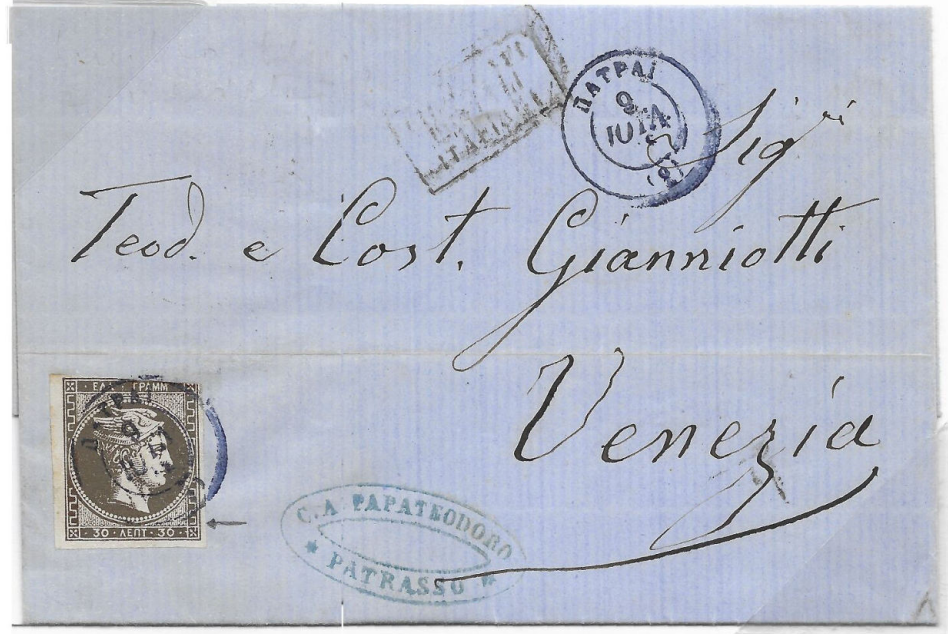 ΠΑΤΡΑΙ
9
ΙΟΥΛ
(9)
Sigri
Teod. e Cost. Gianniotti
Venezia
ΕΛΛ · ΓΡΑΜΜ
ΠΑΤΡΑΙ
9
30 · ΛΕΠΤ · 30
C. A PAPATEODORO
PATRASSO